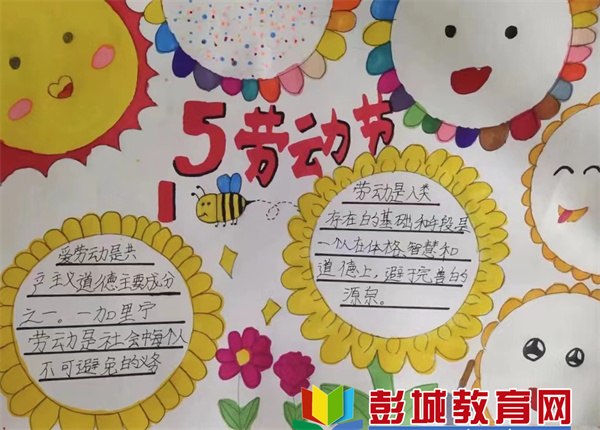 5劳动节
1
爱劳动是共
立主义道德主要成分
之一。一加里宁
劳动是社会中每个人
不可避免的义务
劳动是人类
存在的基础和手段是
一个人在体格、智慧和
道德上,避于完善的
源泉。
彭城教育网